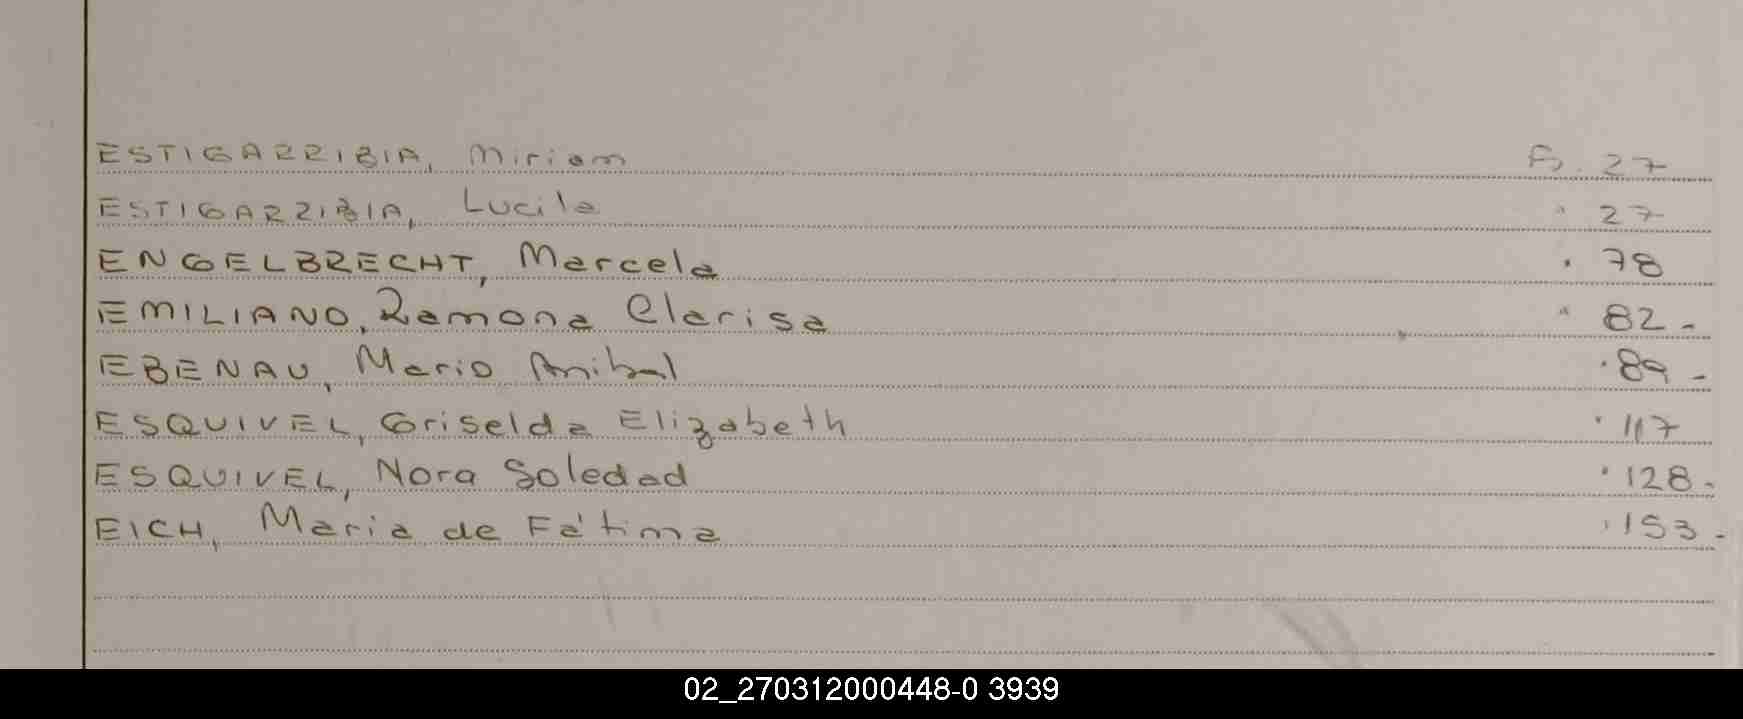 ESTIGARRIBIA, Miriam Fs. 27
ESTIGARRIBIA, Lucila " 27
ENGELBRECHT, Marcela " 78
EMILIANO, Ramona Clarisa " 82-
EBENAU, Mario Anibal " 89-
ESQUIVEL, Griselda Elizabeth " 117
ESQUIVEL, Nora Soledad " 128-
EICH, Maria de Fátima " 153-
02_270312000448-0 3939